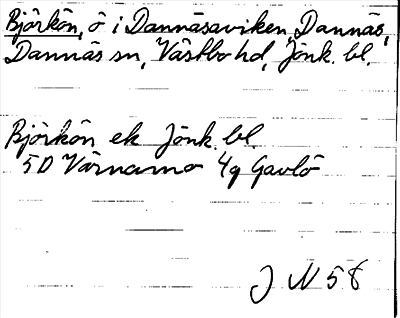 Björkön, ö i Dannäsaviken, Dannäs,
Dannäs sn, Västbo hd, Jönk. bl.
Björkön ek Jönk. bl.
5D Värnamo 4g Gavlö
J N 58